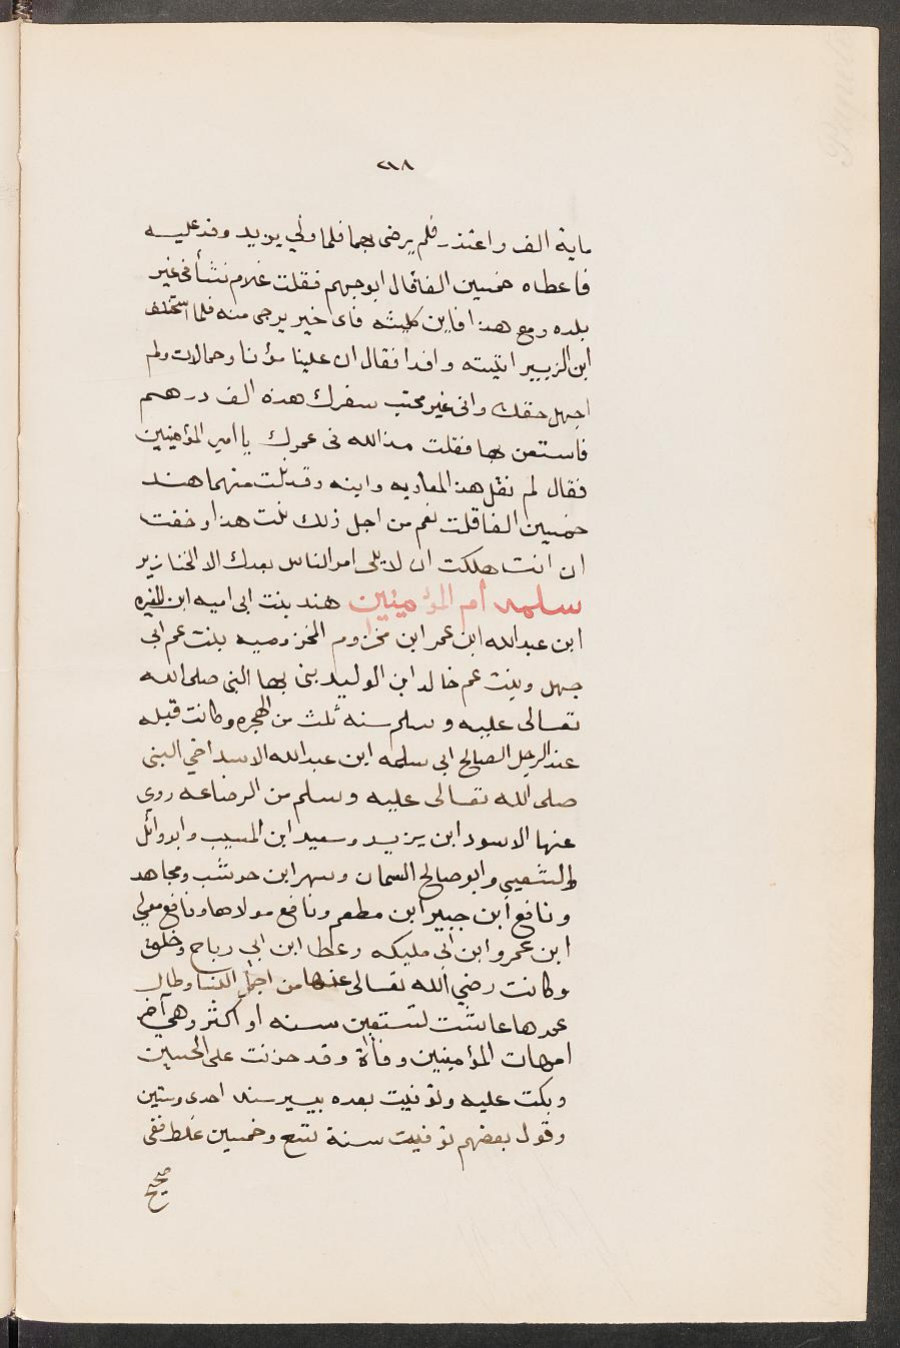 ٢١٨
ماية الف واعتذر فلم يرضى بهما فلما ولي يزيد وفد عليه
فاعطاه خمسين الفا قال ابو جهم فقلت غلام نشأ فى غير
بلده ومع هذا فابن كلبيه فاى خير يرجى منه فلما استخلف
ابن الزبير اتيته وافدا فقال ان علينا مؤنا وحمالات ولم
اجهل حقك وانى غير سفرك هذه الف درهم
فاستعن بها فقلت مد الله فى عمرك يا امير المؤمنين
فقال لم تقل هذا لمعاويه وابنه وقد نلت منهما هند
خمسين الفا قلت نعم من اجل ذلك نلت هذا وخفت
ان انت هلكت ان لا يلى امر الناس بعدك الا الخنازير
سلمه أم المؤمنين هند بنت ابى اميه ابن المغيره
ابن عبد الله ابن عمر ابن مخزوم المخزوميه بنت عم ابى
جهل وبنت عم خالد ابن الوليد بنى بها النبى صلى الله
تعالى عليه وسلم سنه ثلث من الهجره وكانت قبله
عند الرجل الصالح ابى سلمه ابن عبد الله الاسد اخى النبى
صلى الله تعالى عليه وسلم من الرضاعه روى
عنها الاسود ابن يزيد وسعيد ابن المسيب وابو وائل
والشعبي وابو صالح السمان وشهر ابن حوشب ومجاهد
ونافع ابن جبير ابن مطعم ونافع مولاها ونافع مولى
ابن عمرو ابن ابى مليكه وعطا ابن ابى رباح وخلق
وكانت رضي الله تعالى عنها من اجمل النسا وطال
عمرها عاشت تسعين سنه او اكثر وهي آخر
امهات المؤمنين وفاة وقد حزنت على الحسين
وبكت عليه وتوفيت بعده بيسير سنه احدى وستين
وقول بعضهم توفيت سنة تسع وخمسين غلط ففى
صحيح